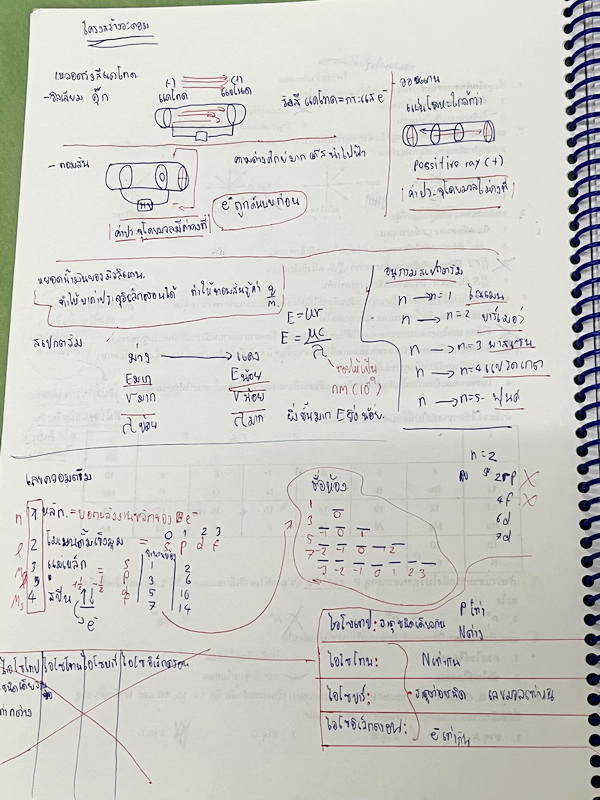 โครงสร้างอะตอม
หลอดรังสีแคโทด
-วิลเลียม คุ๊ก
(-) (+)
แคโทด แอโนด
รังสีแคโทด=กระแส e⁻
-ออยแกน
แผ่นโลหะใกล้กว่า
possitive ray (+)
ค่าประจุโดยมวลไม่คงที่
- ทอมสัน
ความต่างศักย์มาก
ค่าประจุโดยมวลมีค่าคงที่
e⁻ ถูกค้นพบก่อน
หยอดน้ำมันของมิลลิแกน.
ทำให้หาค่าประจุอิเล็กตรอนได้ ทำให้ทอมสันรู้ค่า q/m
E = hν
E = hc/λ
nm (10⁻⁹)
สเปกตรัม
ม่วง → แดง
Eมาก Eน้อย
νมาก νน้อย
λน้อย λมาก
ยิ่งชั้นมาก Eยิ่งน้อย.
อนุกรมสเปกตรัม
n → n=1 ไลแมน
n → n=2 บาร์เมอร์
n → n=3 พาสเชน
n → n=4 แบรคเกต
n → n=5 ฟุนด์
เลขควอนตัม
n 1 หลัก = บอกพลังงานหลักของ e⁻
l 2 โมเมนตัมเชิงมุม = 0 1 2 3
s p d f
3 แม่เหล็ก = s 1 2
p 3 6
ms 4 สปิน d 5 10
f 7 14
e⁻
ชื่อห้อง
1 0
3 -1 0 1
5 -2 -1 0 1 2
7 -3 -2 -1 0 1 2 3
n = 2
4f X
6d
7d
ไอโซโทป: ธาตุชนิดเดียวกัน P เท่า
N ต่าง
ไอโซโทน: Nเท่ากัน
ไอโซบาร์: ธาตุต่างชนิด เลขมวลเท่ากัน
ไอโซอิเล็กตรอน: e⁻ เท่ากัน
ไอโซโทป ไอโซโทน ไอโซบาร์ ไอโซอิเล็กตรอน
ชนิดเดียว